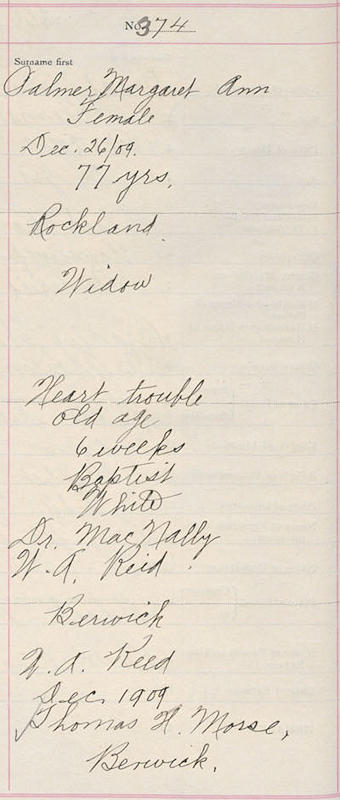 No. 374
Surname first
Palmer, Margaret Ann
Female
Dec. 26/09.
77 yrs.
Rockland
Widow
Heart trouble
old age
6 weeks
Baptist
White
Dr. MacNally
W. A. Reid
Berwick
W. A. Reed
Dec. 1909
Thomas H. Morse,
Berwick.